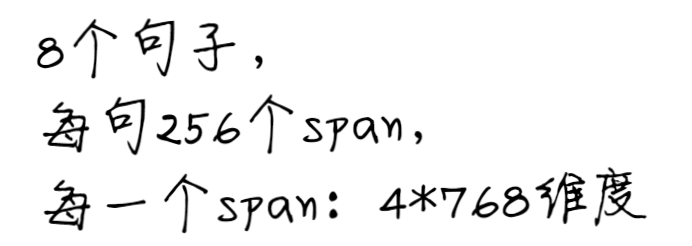 8个句子，
每句256个span，
每一个span：4*768维度